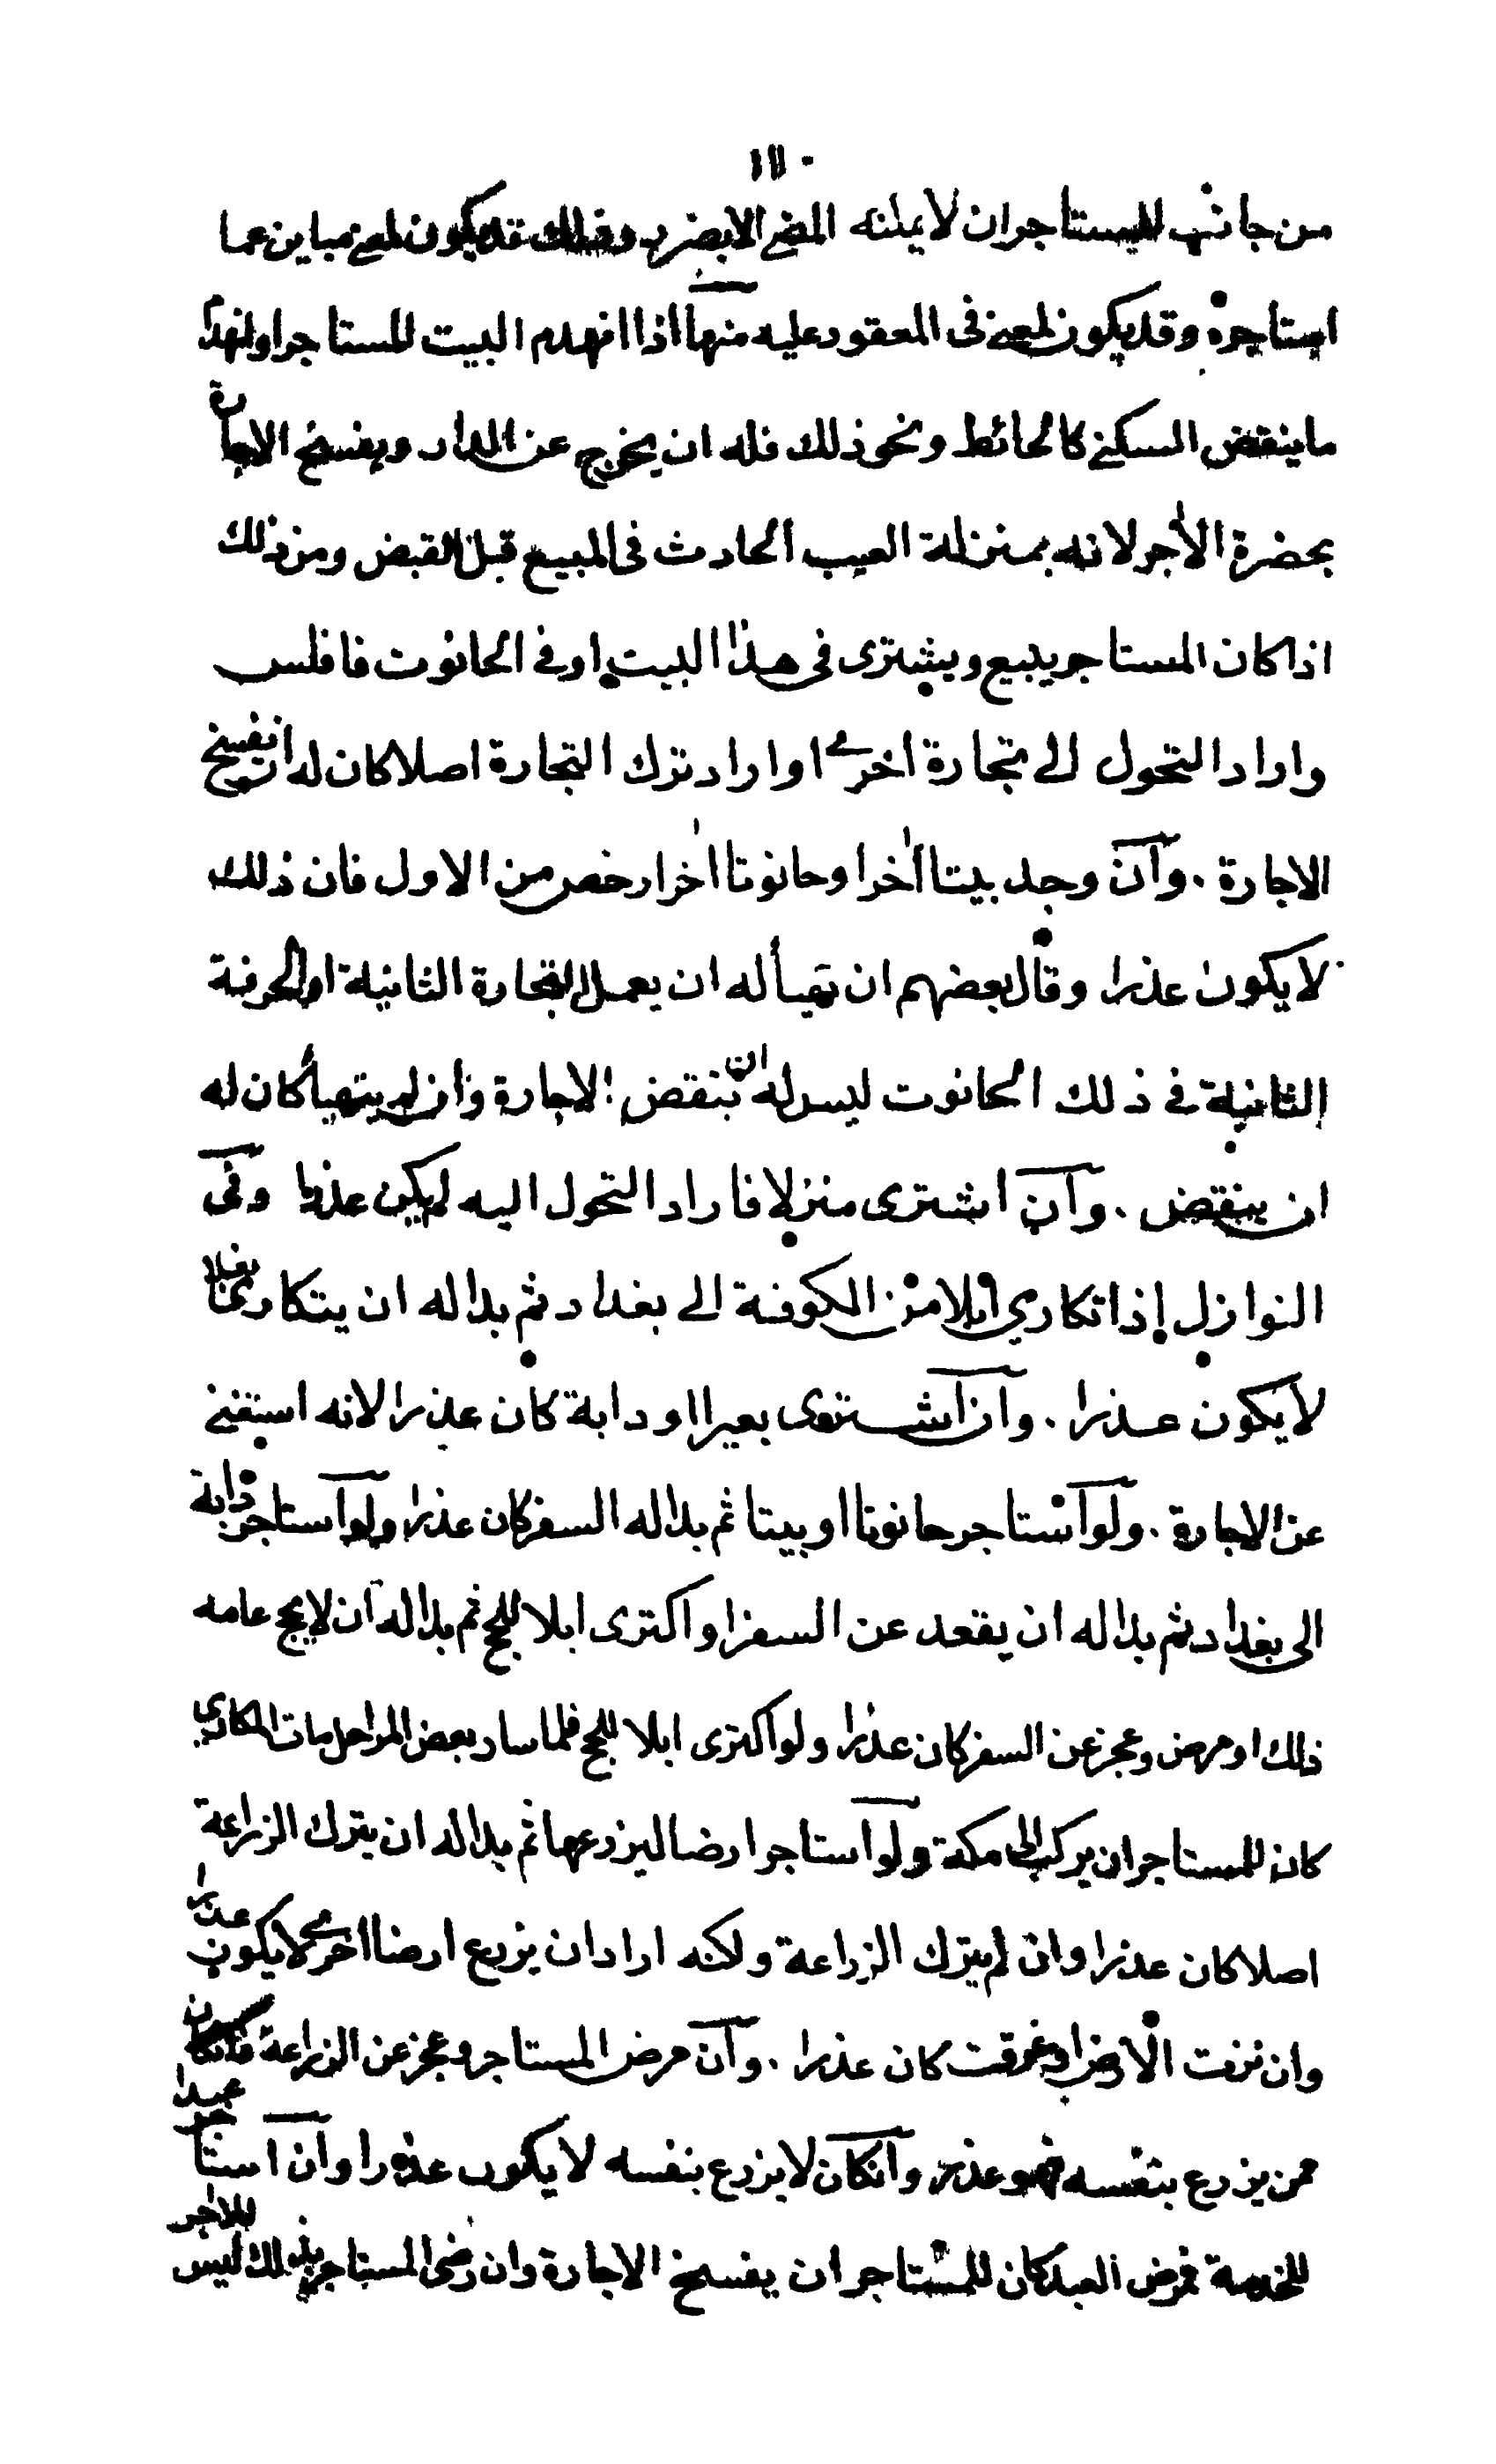 ١١٠
من جانب المستاجر ان لا يمكنه المضى الا بضرر وذلك قد يكون لمعنى مباين عما
استاجره وقد يكون لمعنى فى المعقود عليه منها اذا انهدم البيت المستاجر او انهدم
ما ينقض السكنى كالحائط ونحو ذلك فله ان يخرج عن الدار ويفسخ الاجارة
بحضرة الأجر لانه بمنزلة العيب الحادث فى المبيع قبل القبض ومن ذلك
اذا كان المستاجر يبيع ويشترى فى هذا البيت او فى الحانوت فافلس
واراد التحول الى تجارة اخرى او اراد ترك التجارة اصلا كان له ان يفسخ
الاجارة . وآن وجد بيتا اٰخر او حانوتا اٰخر ارخص من الاول فان ذلك
لا يكون عذرا وقال بعضهم ان تهيأ له ان يعمل التجارة الثانية او الحرفة
الثانية فى ذلك الحانوت ليس له ان ينقض الاجارة وان لم يتهيأ كان له
ان ينقض . وآن اشترى منزلا فاراد التحول اليه لم يكن عذرا وفى
النوازل إذا تكارى ابلا من الكوفة الى بغداد ثم بدا له ان يتكارى بغلا
لا يكون عذرا . وآن اشترى بعيرا او دابة كان عذرا لانه استغنى
عن الاجارة . ولو استاجر حانوتا او بيتا ثم بدا له السفر كان عذرا ولو استاجر دابة
الى بغداد ثم بدا له ان يقعد عن السفر او اكترى ابلا للحج ثم بدا له ان لا يحج عامه
ذلك او مرض وعجز عن السفر كان عذرا ولو اكترى ابلا للحج فلما سار بعض المراحل مات المكارى
كان للمستاجر ان يركب الى مكة ولو استاجر ارضا ليزرعها ثم بدا له ان يترك الزراعة
اصلا كان عذرا وان لم يترك الزراعة ولكنه اراد ان يزرع ارضا اخرى لا يكون عذرا
وان نزت الارض او غرقت كان عذرا . وآن مرض المستاجر وعجز عن الزراعة فان كان
ممن يزرع بنفسه فهو عذر وآنكان لا يزرع بنفسه لا يكون عذرا وآن استاجر عبدا
للخدمة فمرض العبد كان للمستاجر ان يفسخ الاجارة وان رضى المستاجر بذلك ليس للاجر